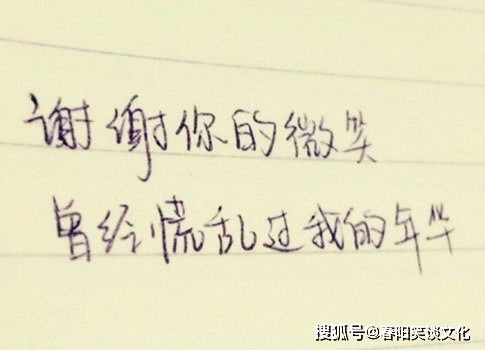 谢谢你的微笑
曾经慌乱过我的年华
搜狐号@春阳笑谈文化